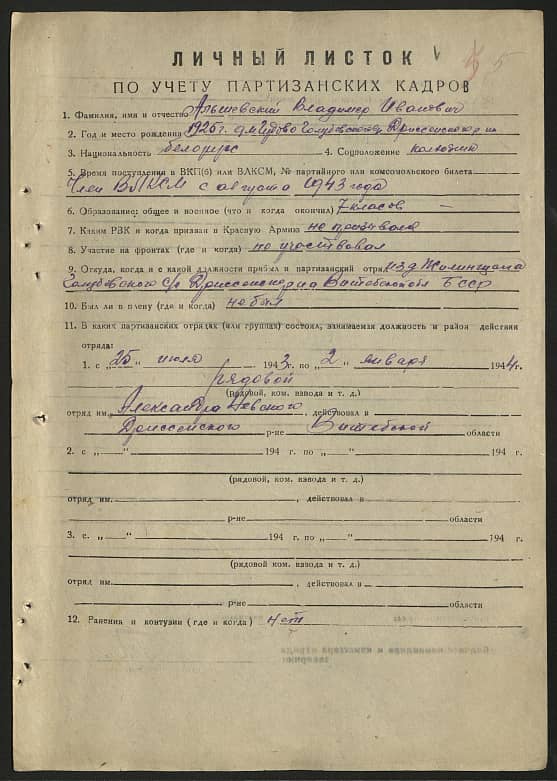 ЛИЧНЫЙ ЛИСТОК 5 5
ПО УЧЕТУ ПАРТИЗАНСКИХ КАДРОВ
1. Фамилия, имя и отчество Альшевский Владимир Иванович
2. Год и место рождения 1926 г. Голубовского с/с Дриссенского р-на
3. Национальность белорус 4. Соцположение колхозник
5. Время поступления в ВКП(б) или ВЛКСМ, № партийного или комсомольского билета
Член ВЛКСМ с августа 1943 года
6. Образование: общее и военное (что и когда окончил) 7 класов —
7. Каким РВК и когда призван в Красную Армию не призывался
8. Участие на фронтах (где и когда) не участвовал
9. Откуда, когда и с какой должности прибыл в партизанский отряд из д.
Голубовского с/с Дриссенского р-на Витебской БССР
10. Был ли в плену (где и когда) не был
11. В каких партизанских отрядах (или группах) состоял, занимаемая должность и район действия
отряда:
1. с „25„ июля 1943 г. по „2„ января 1944 г.
рядовой
(рядовой, ком. взвода и т. д.)
отряд им. Александра Невского, действовал в
Дриссенского р-не Витебской области
2. с „—„ 194 г. по „—„ 194 г.
(рядовой, ком. взвода и т. д.)
отряд им. , действовал в
р-не области
3. с. „—„ 194 г. по „—„ 194 г.
(рядовой, ком. взвода и т. д.)
отряд им. , действовал в
р-не области
12. Ранения и контузии (где и когда) нет